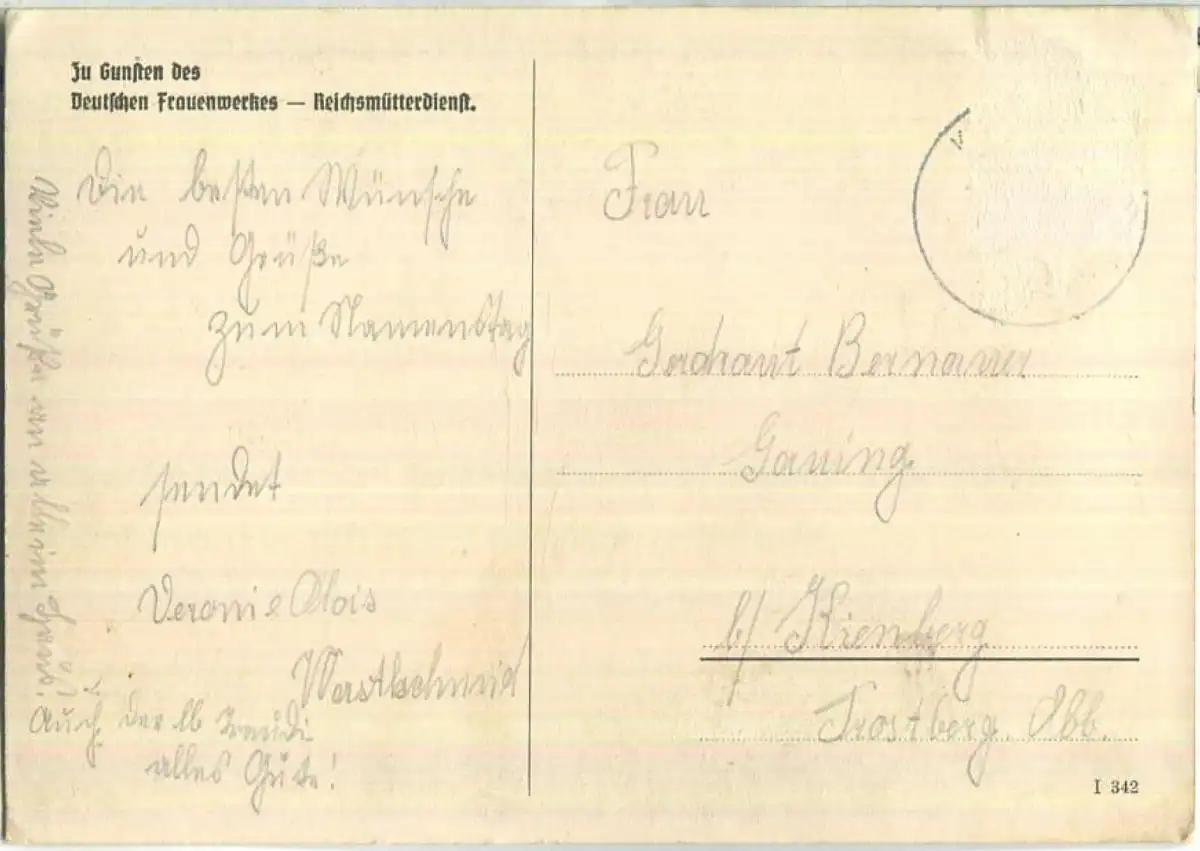 Zu Gunsten des
Deutschen Frauenwerkes — Reichsmütterdienst.
Die besten Wünsche
und Grüße
zum Namenstag
sendet
Veroni e Alois
Auch der lb Traudi
alles Gute!
Viele Grüße an
Frau
Gerdraut Bernauer
Gauing.
b/ Kienberg
Trostberg. Obb.
I 342